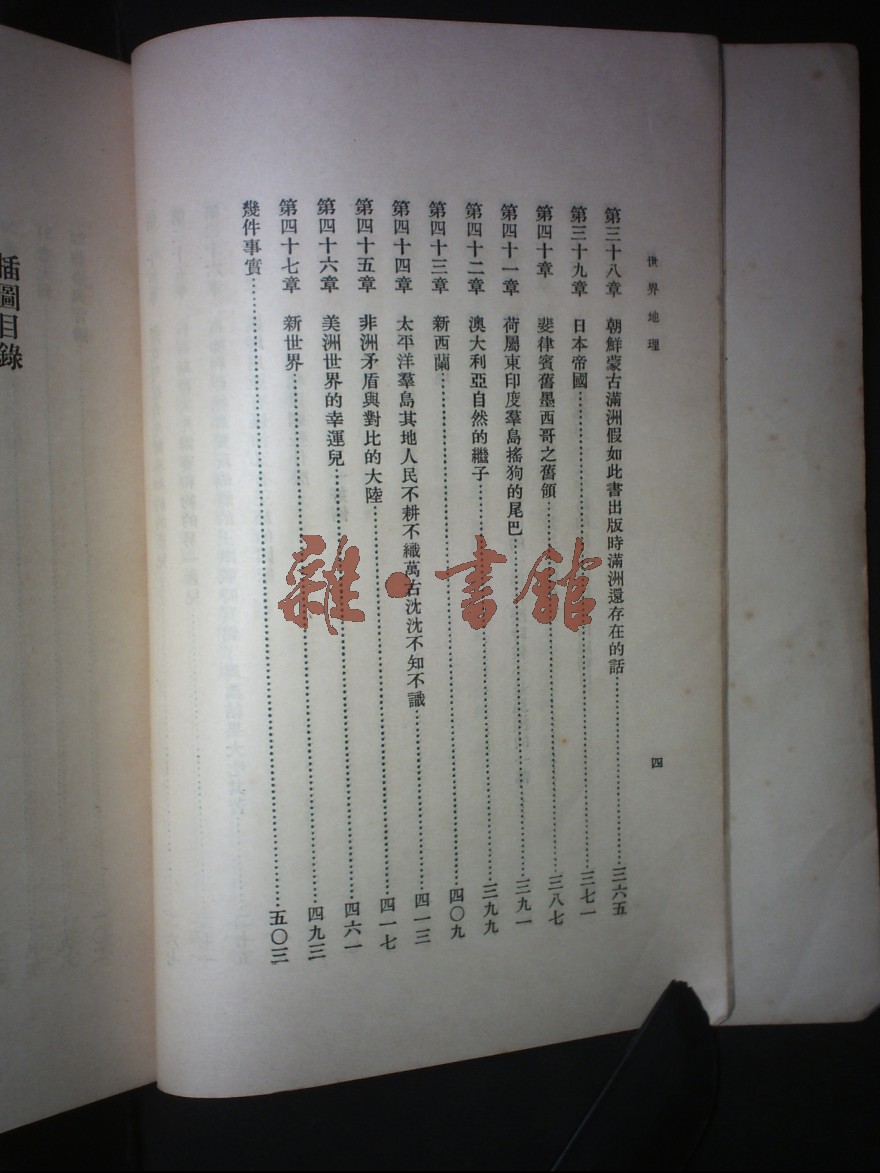 世界地理
四
第三十八章 朝鮮蒙古滿洲假如此書出版時滿洲還存在的話……三六五
第三十九章 日本帝國……三七一
第四十章 斐律賓舊墨西哥之舊領……三八七
第四十一章 荷屬東印度羣島搖狗的尾巴……三九一
第四十二章 澳大利亞自然的繼子……三九九
第四十三章 新西蘭……四〇九
第四十四章 太平洋羣島其地人民不耕不織萬古沈沈不知不識……四一三
第四十五章 非洲矛盾與對比的大陸……四一七
第四十六章 美洲世界的幸運兒……四六一
第四十七章 新世界……四九三
幾件事實……五〇三
插圖目錄
雜·書館